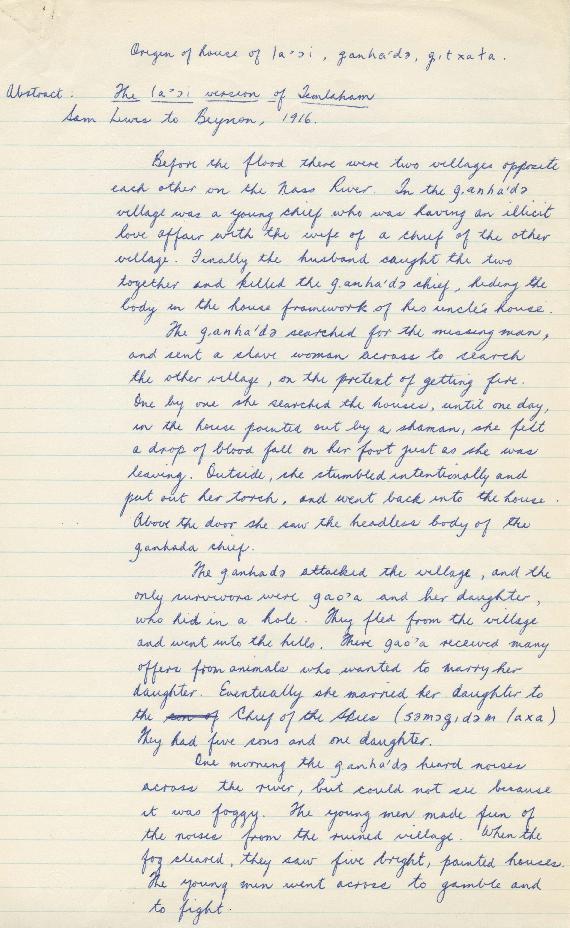 Origin of house of la'ɔi, g̣anha'də, g̣ıtxała.
Abstract: The la'ɔi version of Temlaham
Sam Lewis to Beynon, 1916.
Before the flood there were two villages opposite
each other on the Nass River. In the g̣anha'də
village was a young chief who was having an illicit
love affair with the wife of a chief of the other
village. Finally the husband caught the two
together and killed the g̣anha'də chief, hiding the
body in the house framework of his uncle's house.
The g̣anha'də searched for the missing man,
and sent a slave woman across to search
the other village, on the pretext of getting fire.
One by one she searched the houses, until one day,
in the house pointed out by a shaman, she felt
a drop of blood fall on her foot just as she was
leaving. Outside, she stumbled intentionally and
put out her torch, and went back into the house.
Above the door she saw the headless body of the
ganhada chief.
The ganhadə attacked the village, and the
only survivors were gao'a and her daughter,
who hid in a hole. They fled from the village
and went into the hills. There gao'a received many
offers from animals who wanted to marry her
daughter. Eventually she married her daughter to
the son of Chief of the Skies (səməg̣ıdəm laxa)
They had five sons and one daughter.
One morning the g̣anha'də heard noises
across the river, but could not see because
it was foggy. The young men made fun of
the noises from the ruined village. When the
fog cleared, they saw five bright, painted houses.
The young men went across to gamble and
to fight.